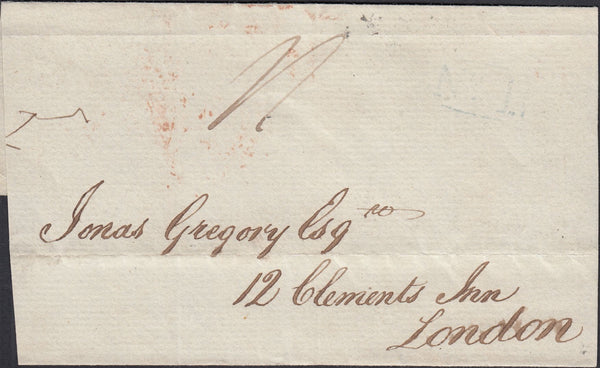 Jonas Gregory Esqre
12 Clements Inn
London